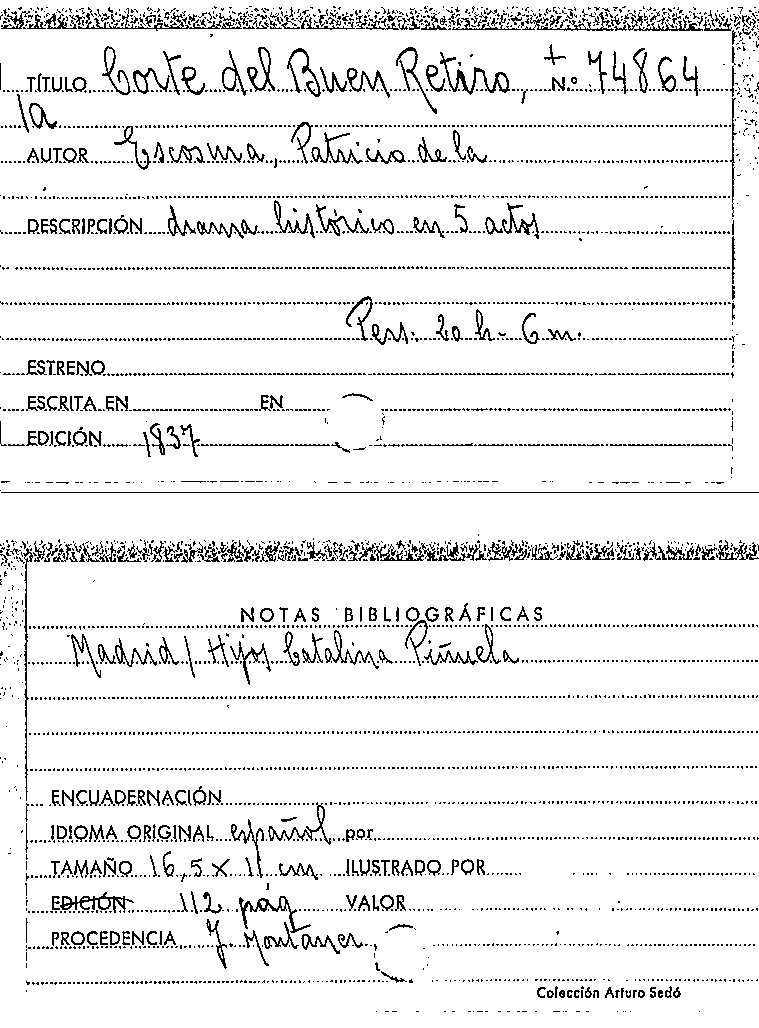 TÍTULO Corte del Buen Retiro, + Nº 74864
la
AUTOR Escosura, Patricio de la
DESCRIPCIÓN drama histórico en 5 actos
Pers. 20 h - 6 m.
ESTRENO
ESCRITA EN EN
EDICIÓN 1837
NOTAS BIBLIOGRÁFICAS
Madrid / Hijos Catalina Piñuela
ENCUADERNACIÓN
IDIOMA ORIGINAL español por
TAMAÑO 16,5 x 11 cm ILUSTRADO POR
EDICIÓN 112 pág VALOR
PROCEDENCIA J. Montaner
Colección Arturo Sedó